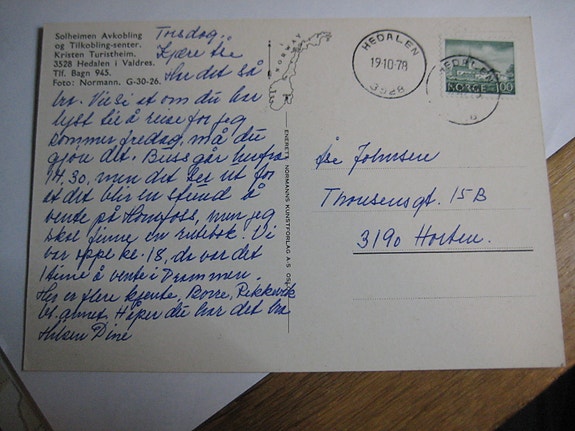 Solheimen Avkobling
og Tilkobling-senter.
Kristen Turistheim.
3528 Hedalen i Valdres.
Tlf. Bagn 945.
Foto: Normann. G-30-26.
Torsdag.
Kjære
Her det så
bra. Vil si at om du har
lyst til å reise før jeg
kommer fredag, må du
gjøre det. Buss går herfra
14,30, men det ser ut for
at det blir en stund å
vente på Hønefoss, men jeg
skal finne en rutebok. Vi
var oppe kl. 18, da var det
1 time å vente i Drammen.
Her er flere kjente, Borre,
Håper du har det bra
Hilsen
NORWAY
ENERETT: NORMANNS KUNSTFORLAG A/S OSLO
HEDALEN
19-10-78
3528
HEDALEN
NORGE 100
Johnsen
Thousensgt. 15B
3190 Horten.